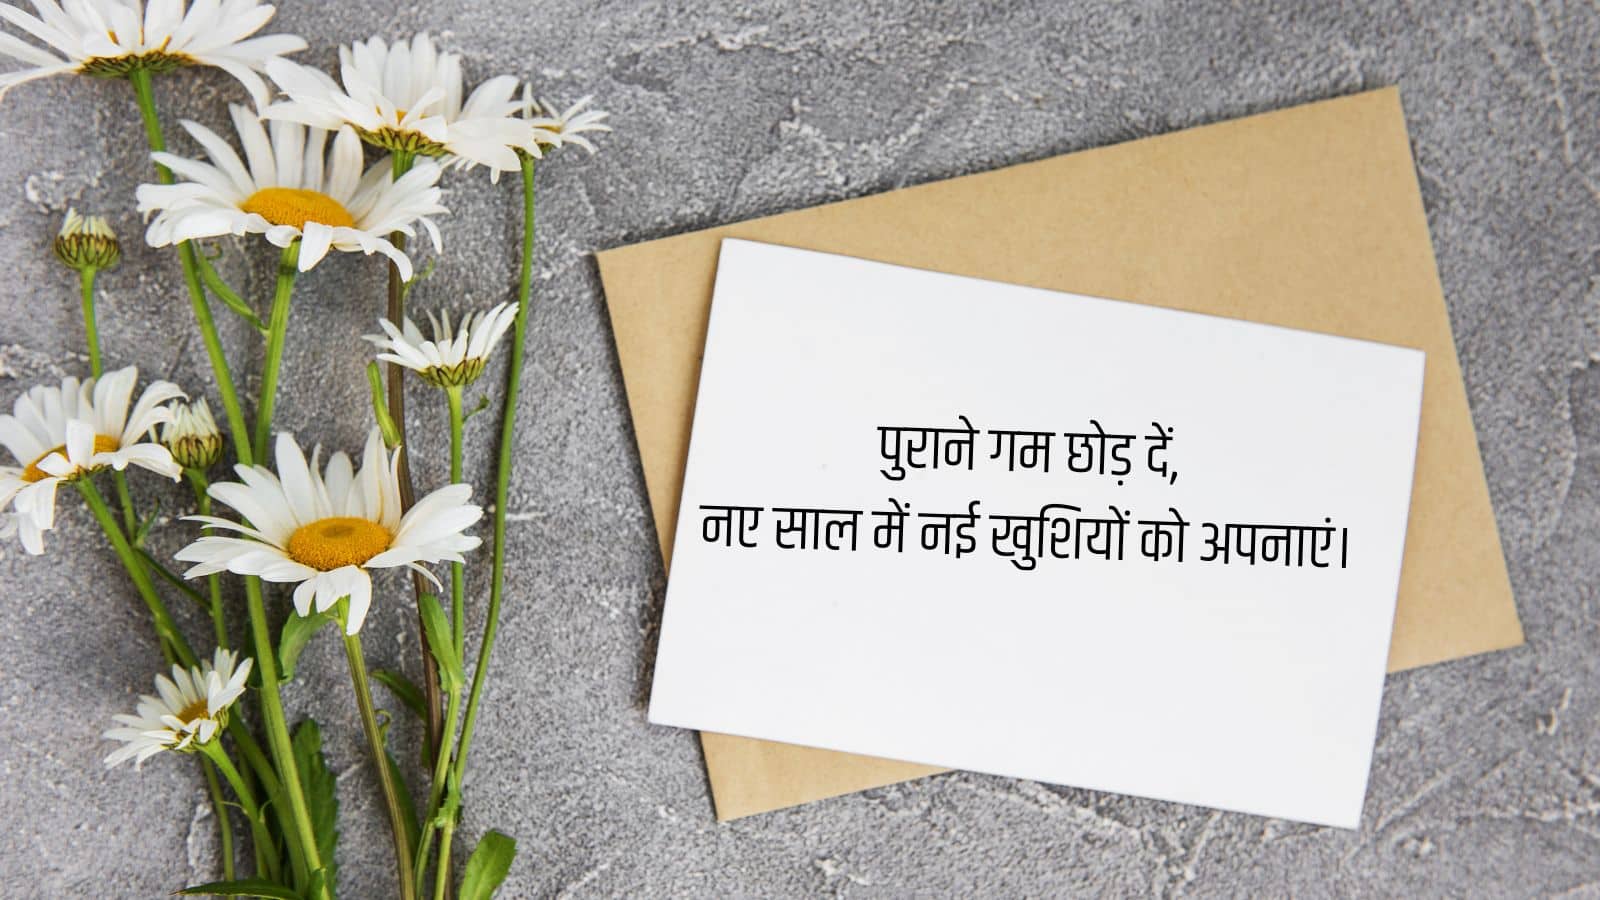 पुराने गम छोड़ दें,
नए साल में नई खुशियों को अपनाएं।